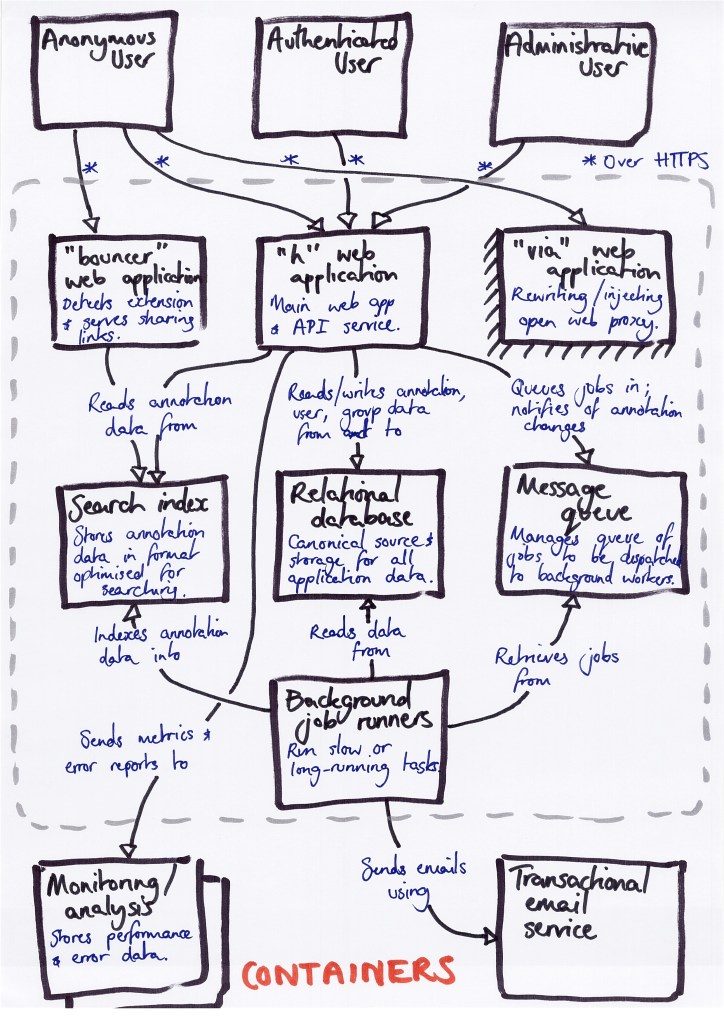 Anonymous
User
Authenticated
User
Administrative
User
*
*
*
*
*
* Over HTTPS
"bouncer"
web application
Detects extension
& serves sharing
links.
"h" web
application
Main web app
& API service.
"via" web
application
Rewriting/injecting
open web proxy.
Reads annotation
data from
Reads/writes annotation,
user, group data
from and to
Queues jobs in;
notifies of annotation
changes
Search index
Stores annotation
data in format
optimised for
searching.
Relational
database
Canonical source &
storage for all
application data.
Message
queue
Manages queue of
jobs to be dispatched
to background workers.
Indexes annotation
data into
Reads data
from
Retrieves jobs
from
Background
job runners
Run slow or
long-running tasks.
Sends metrics &
error reports to
Sends emails
using
Monitoring/
analysis
Stores performance
& error data.
Transactional
email
service
CONTAINERS